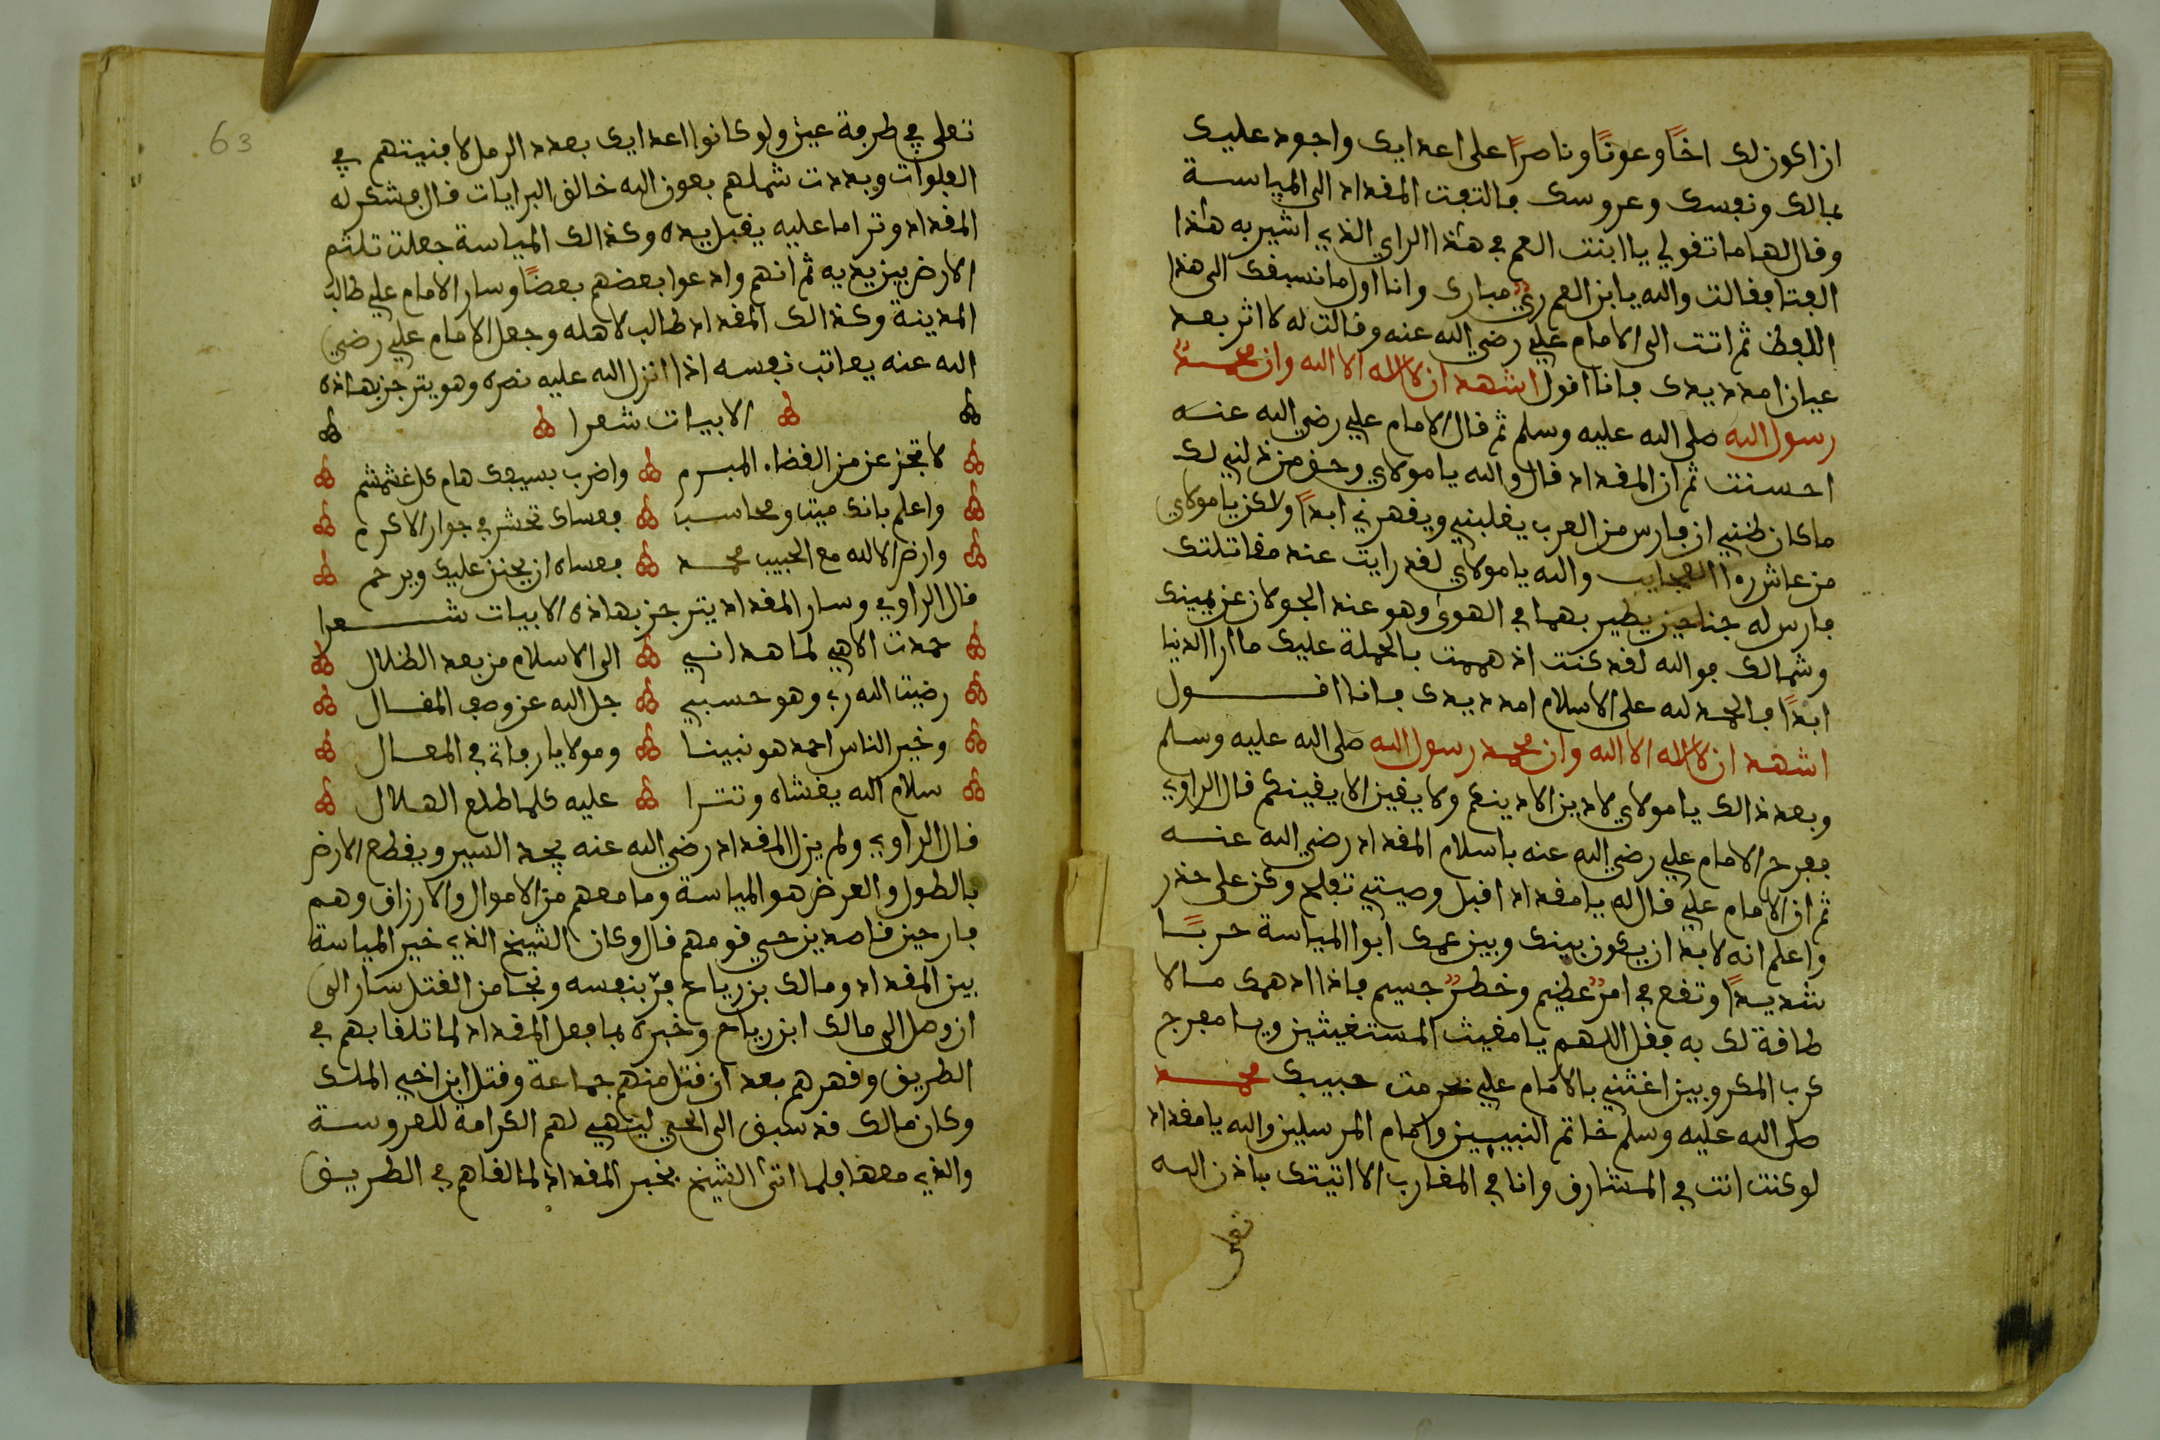 ان اكون لك اخًا وعونًا وناصرًا على اعدايك واجود عليك
بمالك ونفسك وعروسك فالتفت المقداد الى المياسة
وقال لها ما تقولي يا ابنت العم في هذا الراي الذي اشير به هذا
الفتا فقالت والله يابن العم ريٌ مبارك وانا اول ما نسبقك الى هذا
اللفظ ثم اتت الى الامام علي رضي الله عنه وقالت له لا اثر بعد
عيان امدد يدك فانا اقول اشهد ان لا اله الا الله وان محمدً
رسول الله صلى الله عليه وسلم ثم قال الامام علي رضي الله عنه
احسنت ثم ان المقداد قال والله يا مولاي وحق من ذلني لك
ما كان ظنني ان فارس من العرب يغلبني ويقهرني ابدًا ولاكن يا مولاي
من عاش راا العجايب والله يا مولاي لقد رايت عند مقاتلتك
فارس له جناحين يطير بهما في الهوى وهو عند الجولان عن يمينك
وشمالك فوالله لقد كنت اذ هممت بالحملة عليك ما ارا الدنيا
ابدًا فالحمد لله على الاسلام امدد يدك فانا اقول
اشهد ان لا اله الا الله وان محمد رسول الله صلى الله عليه وسلم
وبعد ذالك يا مولاي لا دين الا دينكم ولا يقين الا يقينكم قال الراوي
ففرح الامام علي رضي الله عنه باسلام المقداد رضي الله عنه
ثم ان الامام علي قال له يا مقداد اقبل وصيتي تفلح وكن على حذر
واعلم انه لا بد ان يكون بينك وبين عمك ابوا المياسة حربًا
شديدًا وتقع في امرٌ عظيم وخطرٌ جسيم فاذا ادهمك مالا
طاقة لك به فقل اللهم يا مغيث المستغيثين ويا مفرج
كرب المكروبين اغثني بالامام علي بحرمت حبيبك محمد
صلى الله عليه وسلم خاتم النبيين وامام المرسلين والله يا مقداد
لو كنت انت في المشارق وانا في المغارب الا اتيتك باذن الله
تعلى
63
تعلى في طرفة عين ولو كانوا اعدايك بعدد الرمل لافنيتهم في
الفلوات وبددت شملهم بعون الله خالق البرايات قال فشكر له
المقداد وتراما عليه يقبل يده وكذالك المياسة جعلت تلثم
الارض بين يديه ثم انهم وادعوا بعضهم بعضًا وسار الامام علي طالب
المدينة وكذالك المقداد طالب لاهله وجعل الامام علي رضي
الله عنه يعاتب نفسه اذا انزل الله عليه نصره وهو يترجز بهاذه
الابيات شعرا
لا تجزعن من القضاء المبرم واضرب بسيفك هام كل غشمشم
واعلم بانك ميت ومحاسبا فعساك تحشر في جوار الاكرم
وارض الاله مع الحبيب محمد فعساه ان يحنن عليك ويرحم
قال الراوي وسار المقداد يترجز بهاذه الابيات شعرا
حمدت الاهي لما هداني الى الاسلام من بعد الظلال
رضيت الله ربي وهو حسبي جل الله عز وصف المقال
وخير الناس احمد هو نبينا ومولايا رفاتي في المعال
سلام الله يغشاه وتترا عليه كلما طلع الهلال
قال الراوي ولم يزل المقداد رضي الله عنه يجد السير ويقطع الارض
بالطول والعرض هو المياسة وما معهم من الاموال والارزاق وهم
فارحين قاصدين حي قومهم قال وكان الشيخ الذي خير المياسة
بين المقداد ومالك بن رياح فرّ بنفسه ونجا من القتل سار الى
ان وصل الى مالك ابن رياح وخبره بما فعل المقداد لما تلقا بهم في
الطريق وقهرهم بعد ان قتل منهم جماعة وقتل ابن اخي الملك
وكان مالك قد سبق الى الحي ليهيي لهم الكرامة للعروسة
والذي معها فلما اتى الشيخ بخبر المقداد لما لقاهم في الطريق